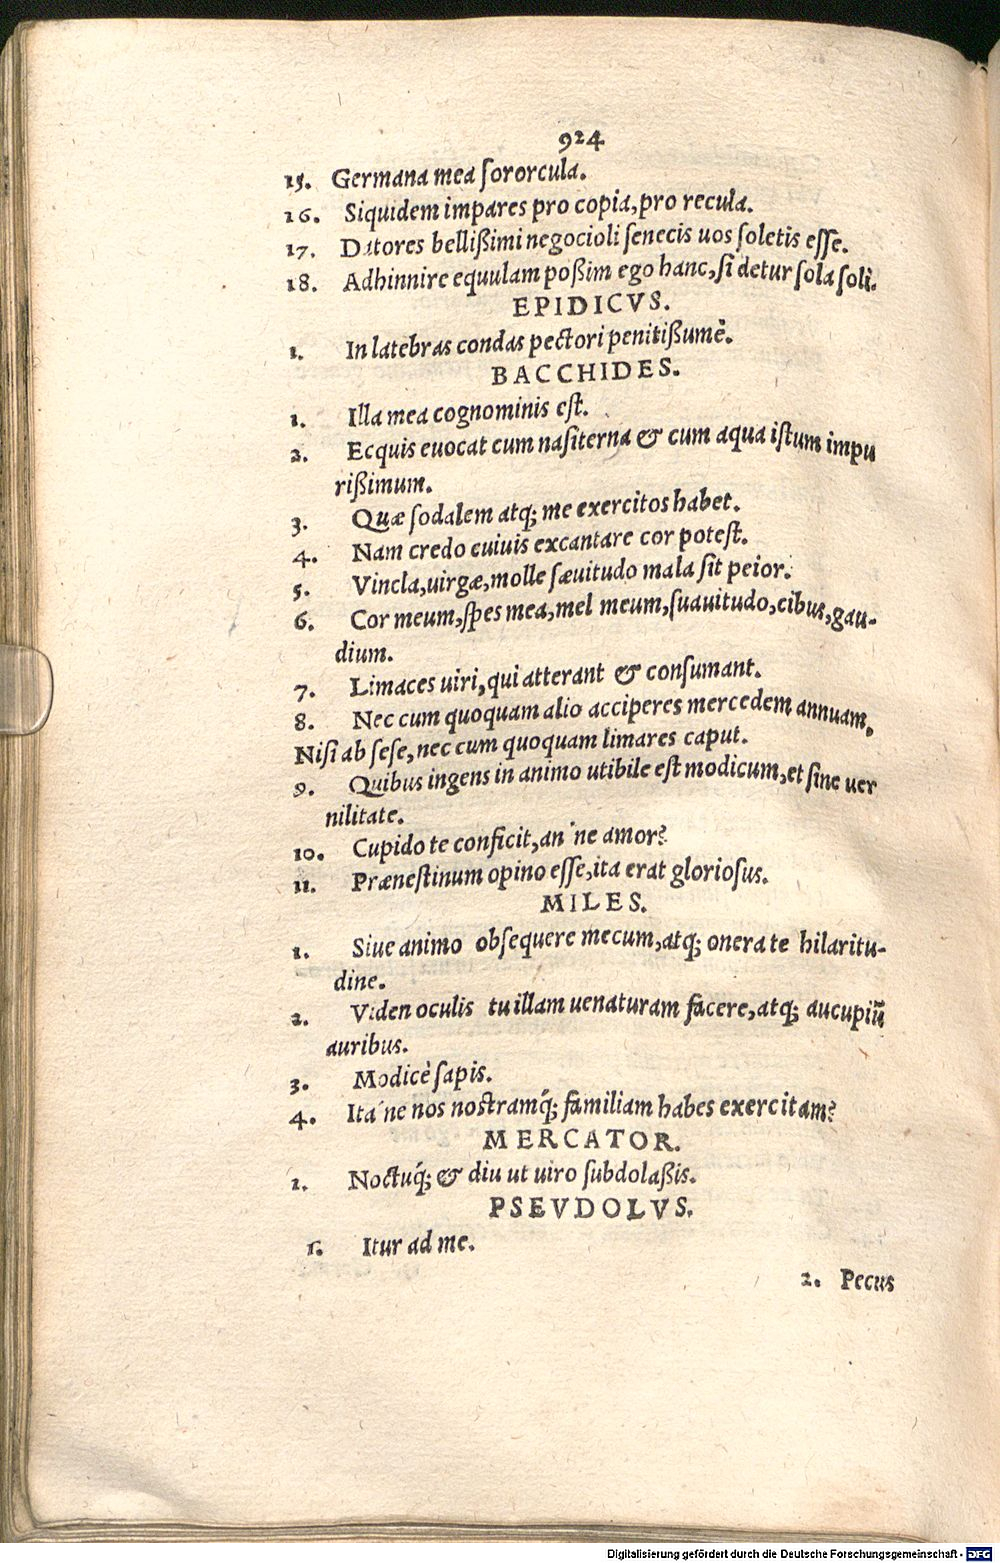 924
15. Germana mea ſororcula.
16. Siquidem impares pro copia, pro recula.
17. Ditores bellißimi negocioli ſenecis uos ſoletis eſſe.
18. Adhinnire equulam poßim ego hanc, ſi detur ſola ſoli.
EPIDICVS.
1. In latebras condas pectori penitißumè.
BACCHIDES.
1. Illa mea cognominis eſt.
2. Ecquis euocat cum naſiterna & cum aqua iſtum impu
rißimum.
3. Quæ ſodalem atq; me exercitos habet.
4. Nam credo cuiuis excantare cor poteſt.
5. Vincla, uirgæ, molle ſæuitudo mala ſit peior.
6. Cor meum, ſpes mea, mel meum, ſuauitudo, cibus, gau-
dium.
7. Limaces uiri, qui atterant & conſumant.
8. Nec cum quoquam alio acciperes mercedem annuam,
Niſi ab ſeſe, nec cum quoquam limares caput.
9. Quibus ingens in animo utibile eſt modicum, et ſine uer
nilitate.
10. Cupido te conficit, an'ne amor?
11. Præneſtinum opino eſſe, ita erat glorioſus.
MILES.
1. Siue animo obſequere mecum, atq; onera te hilaritu-
dine.
2. Viden oculis tu illam uenaturam facere, atq; aucupiũ
auribus.
3. Modicè ſapis.
4. Ita'ne nos noſtramq́; familiam habes exercitam?
MERCATOR.
1. Noctuq́; & diu ut uiro ſubdolaßis.
PSEVDOLVS.
1. Itur ad me.
2. Pecus
Digitalisierung gefördert durch die Deutsche Forschungsgemeinschaft - DFG